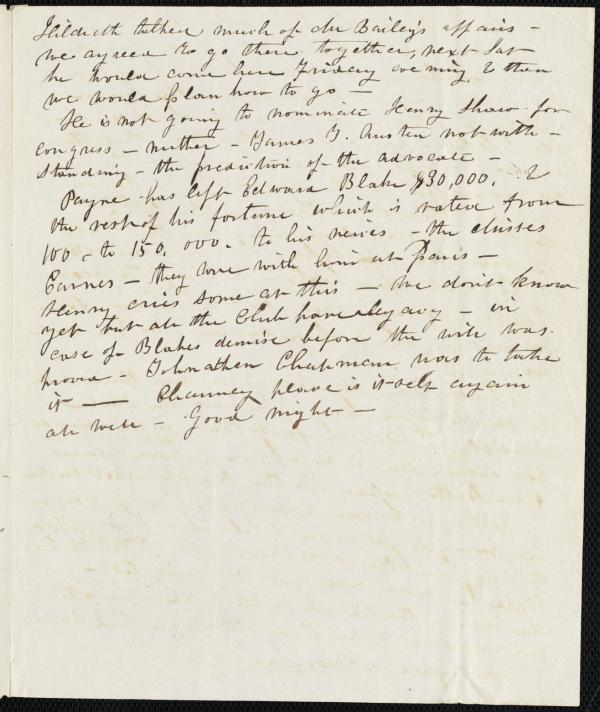 Hildreth talked much of Dr Bailey's affairs -
we agreed to go there together, next Sat
he would come here Friday evening & then
we would plan how to go -
He is not going to nominate Henry Shaw for
congress - neither - James T. Austin not with-
standing - the prediction of the advocate -
Payne has left Edward Blake $30,000. &
the rest of his fortune which is rated from
100 - to 150,000. to his neices - the Misses
Carnes - they were with him at Paris -
Henry cries some at this - we don't know
yet but all the Club have a legacy - in
case of Blakes demise before the will was
proved - Johnathen Chapman was to take
it - Chauncy place is itself again
all well - Good night -